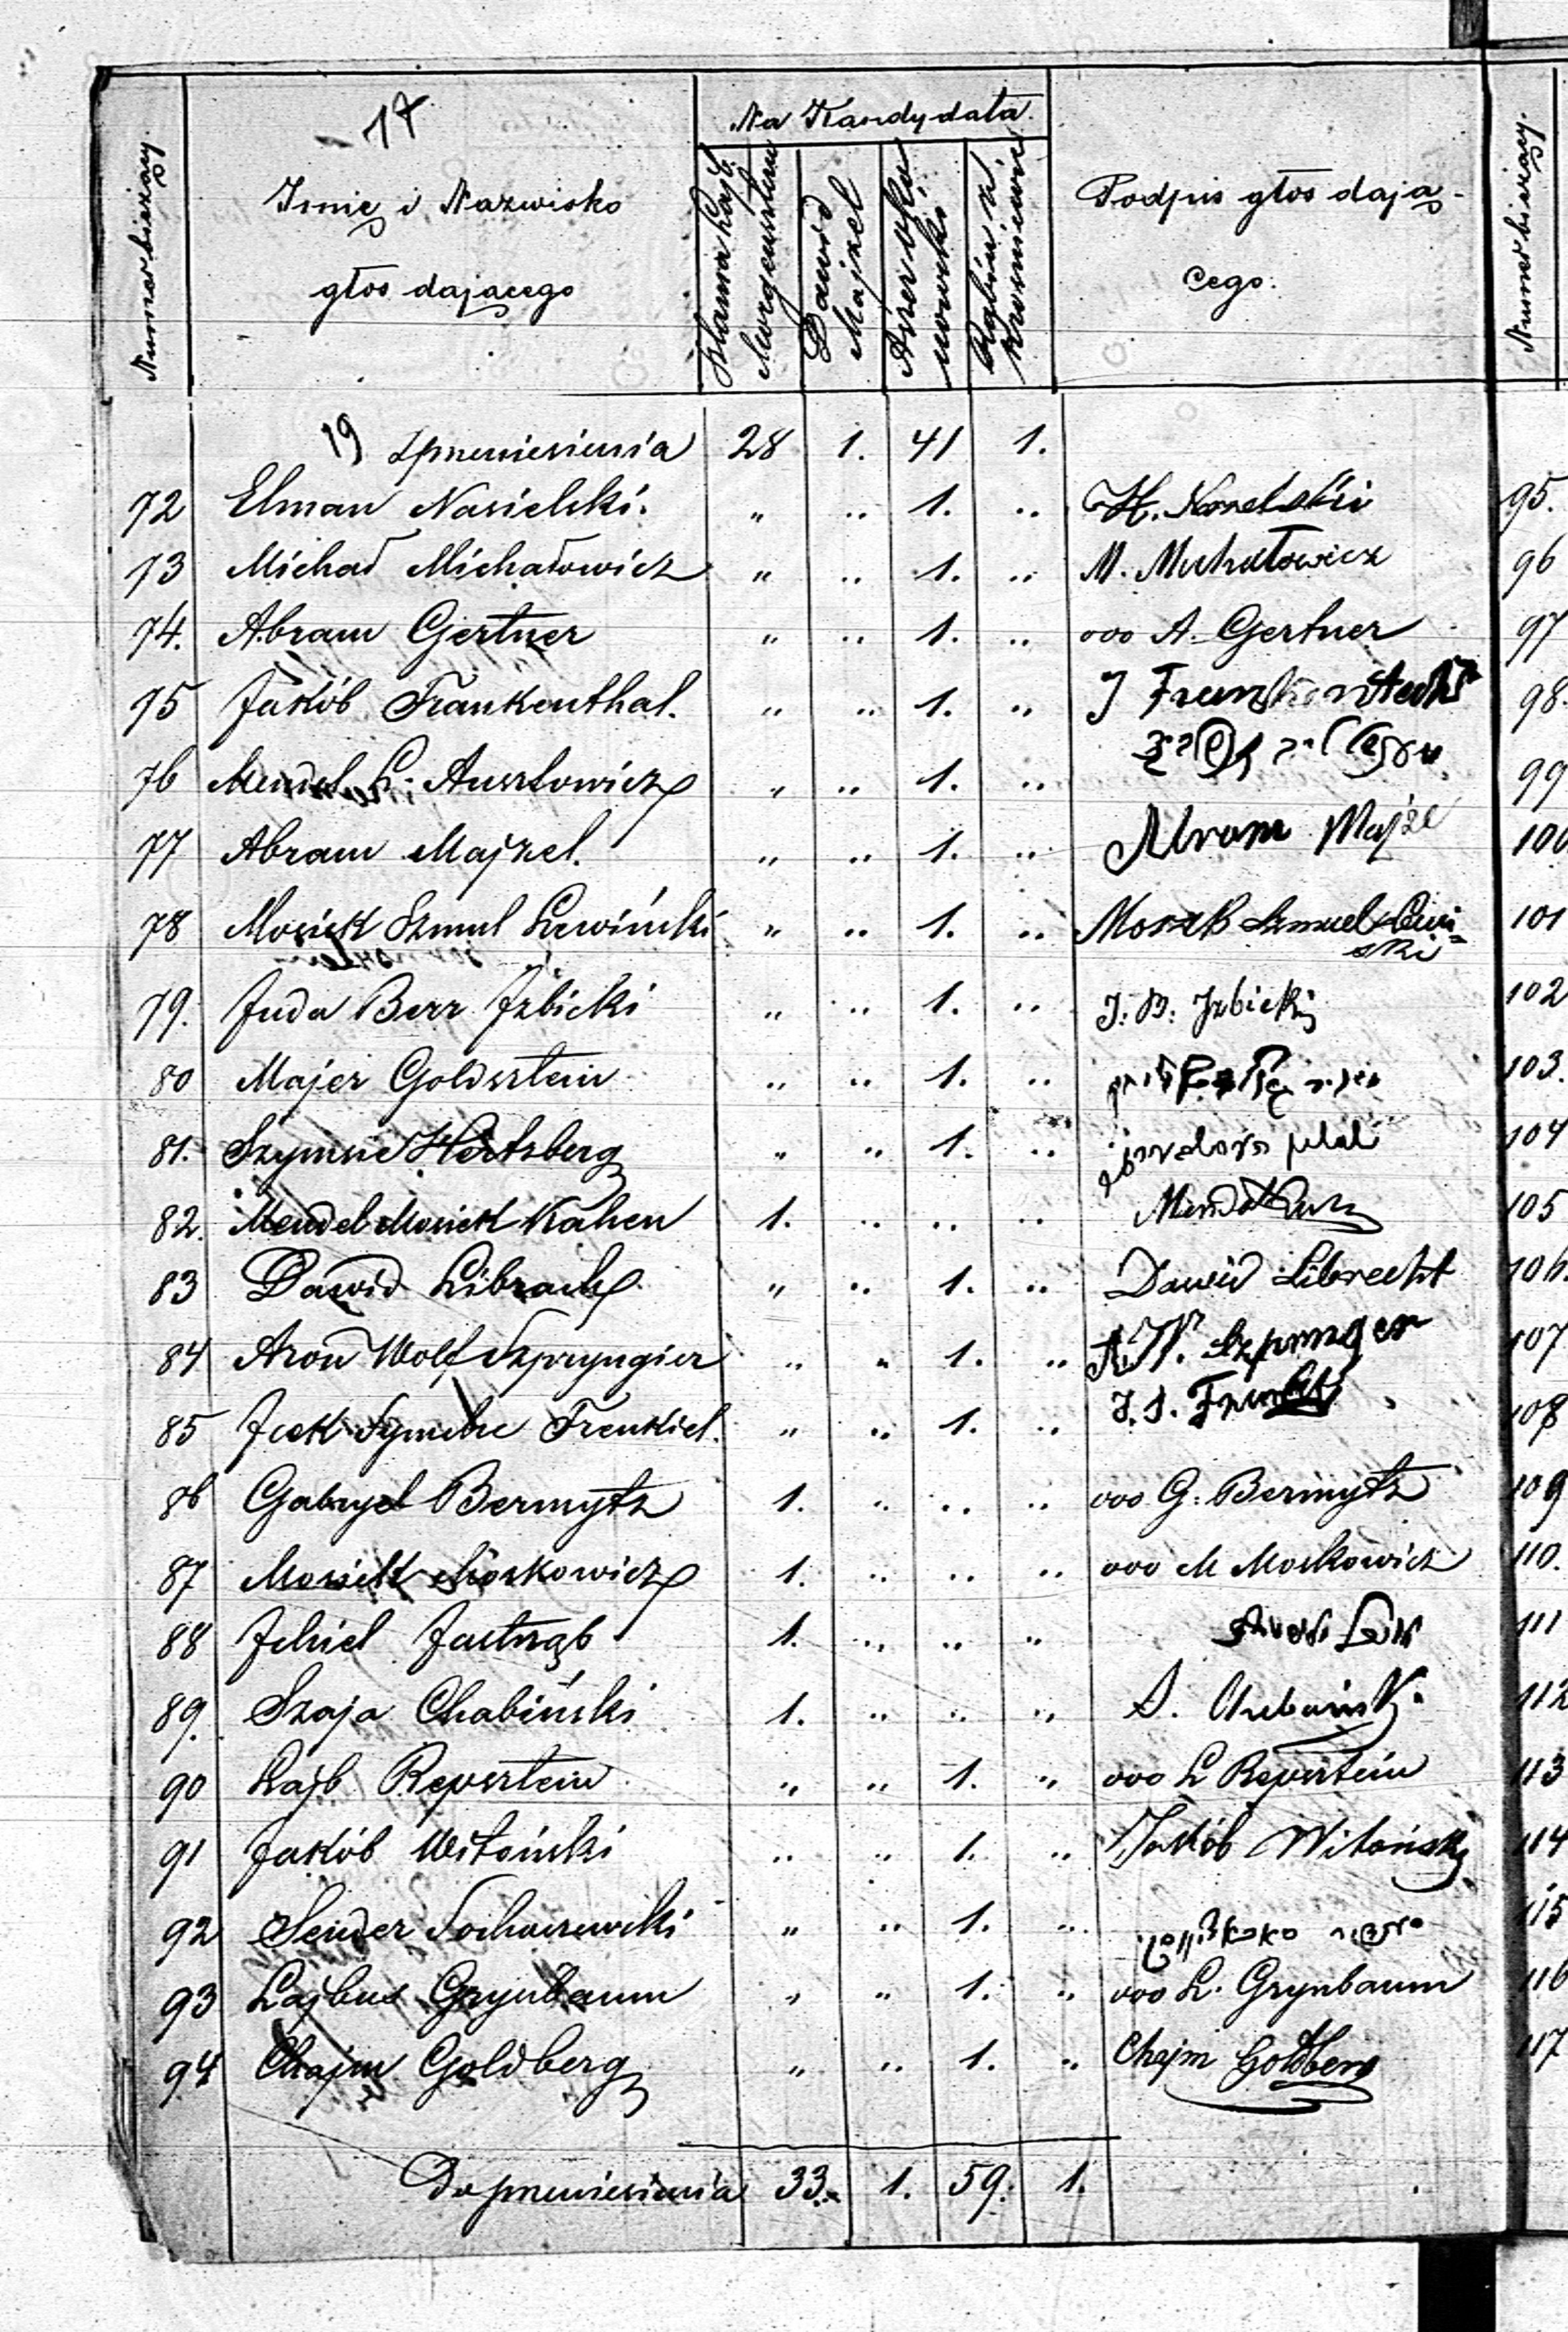 17
Numer bieżący.
Imię i Nazwisko
głos dającego
Na Kandydata.
Dawid Majzel
Rabin z
Podpis głos dają-
cego.
Numer bieżący.
19 Z przeniesienia 28 1. 41 1.
72 Elman Nasielski. " " 1. " H. 95.
73 Michał Michałowicz " " 1. " M. Michałowicz 96
74. Abram Gertner " " 1. " ooo A. Gertner 97
75 Jakób Frankenthal. " " 1. " J 98.
76 Mendel L. " " 1. " 99
77 Abram Majzel. " " 1. " Abram Majze 100
78 Mosiek Szmul Lewiński " " 1. " Moszk Szmuel Lewi=
ski 101
79. Juda Berr Izbicki " " 1. " J. B. Izbicki 102
80 Majer Goldsztein " " 1. " 103.
81. Szymsie Hertzberg " " 1. " 104
82. Mendel Mosiek Kahen 1. " " " 105
83 Dawid Librach " " 1. " Dawid Librecht 106.
84 Aron Wolf Szpryngier " " 1. " A. W. Szpringer 107
85 Jcek Symche Frenkiel. " " 1. " J. S. 108
86 Gabryel Bermytz 1. " " " ooo G. Bermytz 109
87 Mosiek Moskowicz 1. " " " ooo M Moskowicz 110.
88 Jchiel Jastrząb 1. " " " 111
89. Szaja Chabiński 1. " " " S. 112
90 Lajb Repsztein " " 1. " ooo L Repsztein 113
91 Jakób Witoński " " 1. " Jakób Witoński 114
92 Sender Sochaczewski " " 1. " 115
93 Lajbus Grynbaum " " 1. " ooo L. Grynbaum 116
94 Chajm Goldberg " " 1. " Chajm Goldberg 117
Do przeniesienia 33. 1. 59. 1.